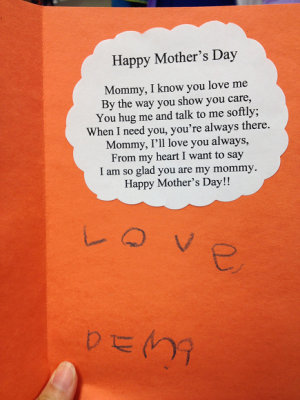 Happy Mother's Day
Mommy, I know you love me
By the way you show you care,
You hug me and talk to me softly;
When I need you, you're always there.
Mommy, I'll love you always,
From my heart I want to say
I am so glad you are my mommy.
Happy Mother's Day!!
LOve